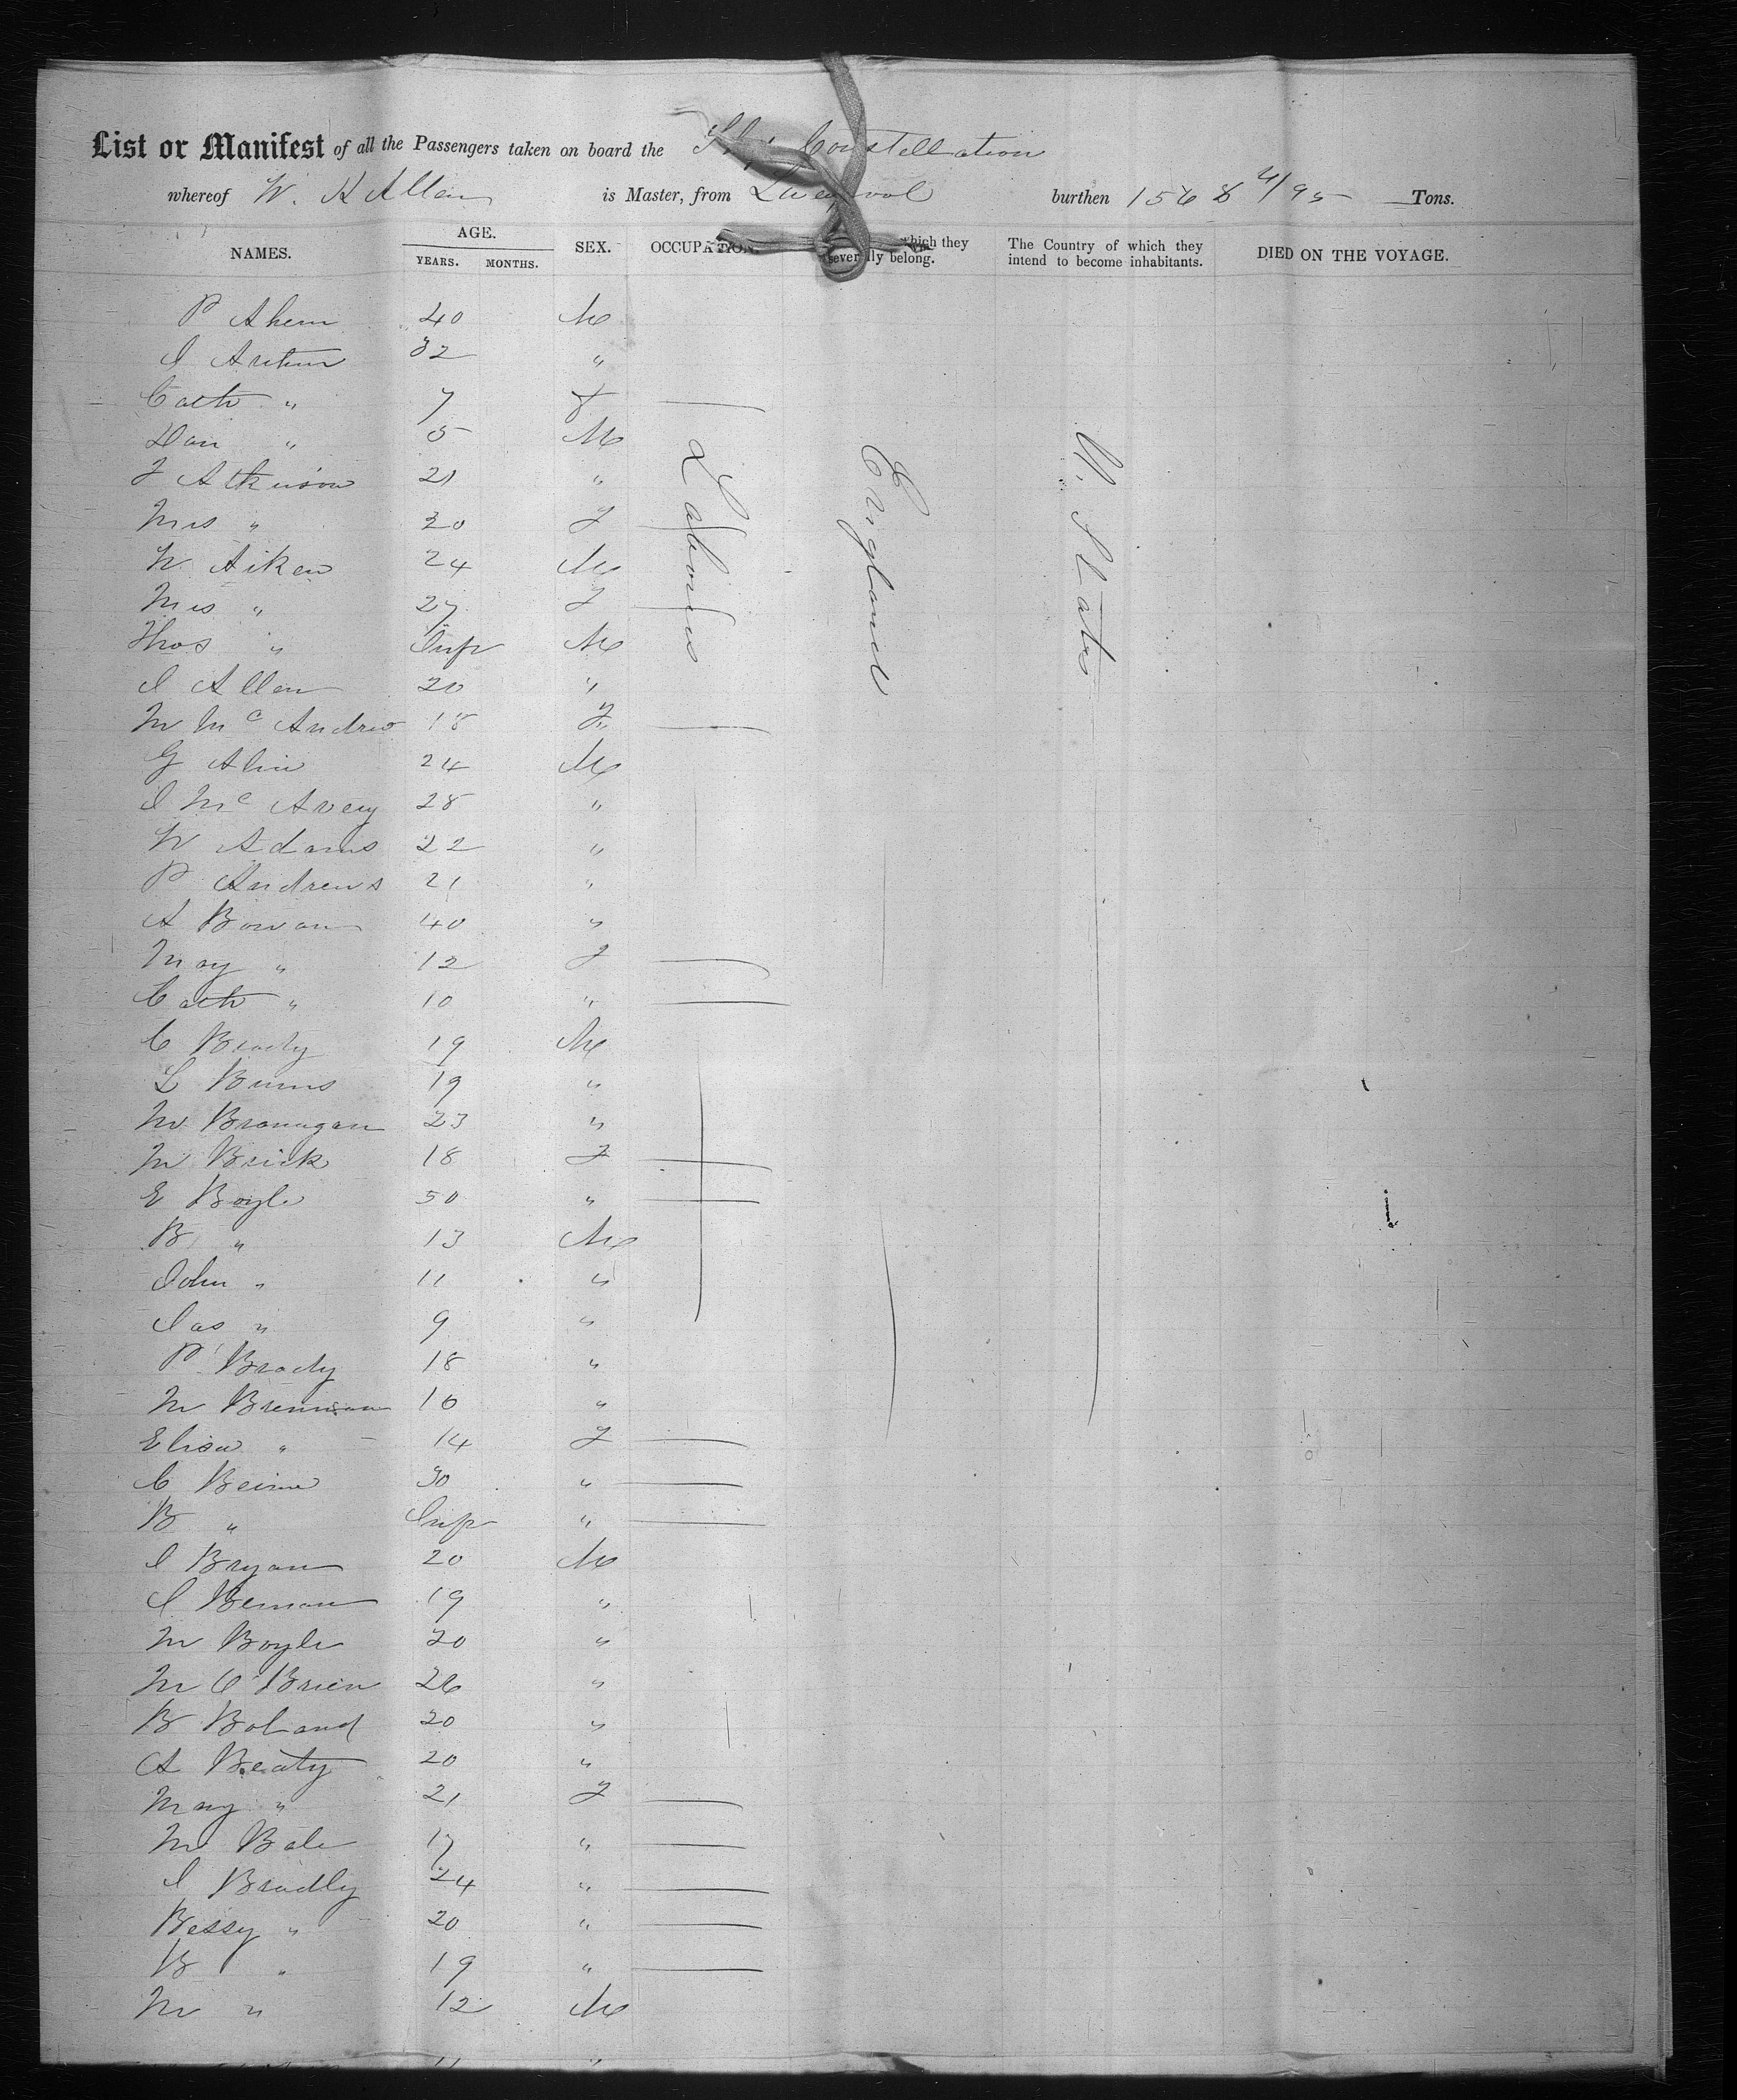 List or Manifest of all the Passengers taken on board the Ship Constellation
whereof W. H Allen is Master, from Liverpool burthen 1568 4/95 Tons.
NAMES. AGE. YEARS. MONTHS. SEX. OCCUPATION. which they severally belong. The Country of which they intend to become inhabitants. DIED ON THE VOYAGE.
P Ahern 40 M
J Arthur 32 "
Cath " 7 F —
Dan " 5 M
J Atkinson 21 "
Mrs " 20 F —
W Aiken 24 M
Mrs " 27 F —
Thos " Inft M
J Allen 20 "
M McAndrew 18 F —
G Alin 24 M
J McAvery 28 "
W Adams 22 "
P Andrews 21 "
A Bowan 40 "
May " 12 F —
Cath " 10 " —
C Brady 19 M
L Burns 19 "
M Brannigan 23 "
M Brick 18 F —
E Boyle 50 " —
B " 13 M
John " 11 "
Jas " 9 "
P Brady 18 "
M Brennan 16 "
Elisa " 14 F —
C Beirne 30 " —
B " Inft " —
J Bryan 20 M
J 19 "
M Boyle 20 "
M O'Brien 26 "
B Boland 20 "
A Beaty 20 "
Mary " 21 F —
M Bale 17 " —
J Bradly 24 " —
Bessy " 20 " —
B " 19 " —
M " 12 M
Laborers
England
U. States